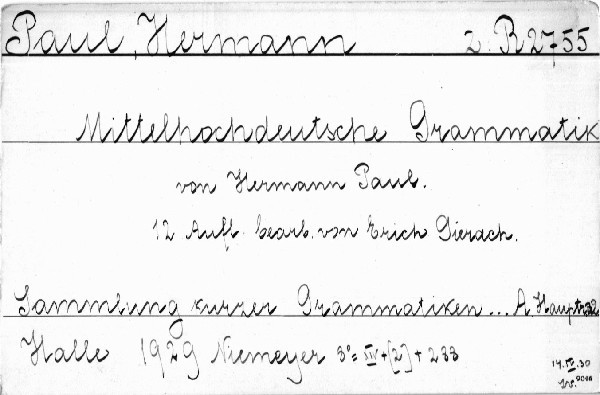 Paul, Hermann 2. R 2755
Mittelhochdeutsche Grammatik
von Hermann Paul.
12 Aufl. bearb. von Erich Gierach.
Sammlung kurzer Grammatiken... A. Hauptr. 2
Halle 1929 Niemeyer 8° = XIV + [2] + 233
14.IV.30